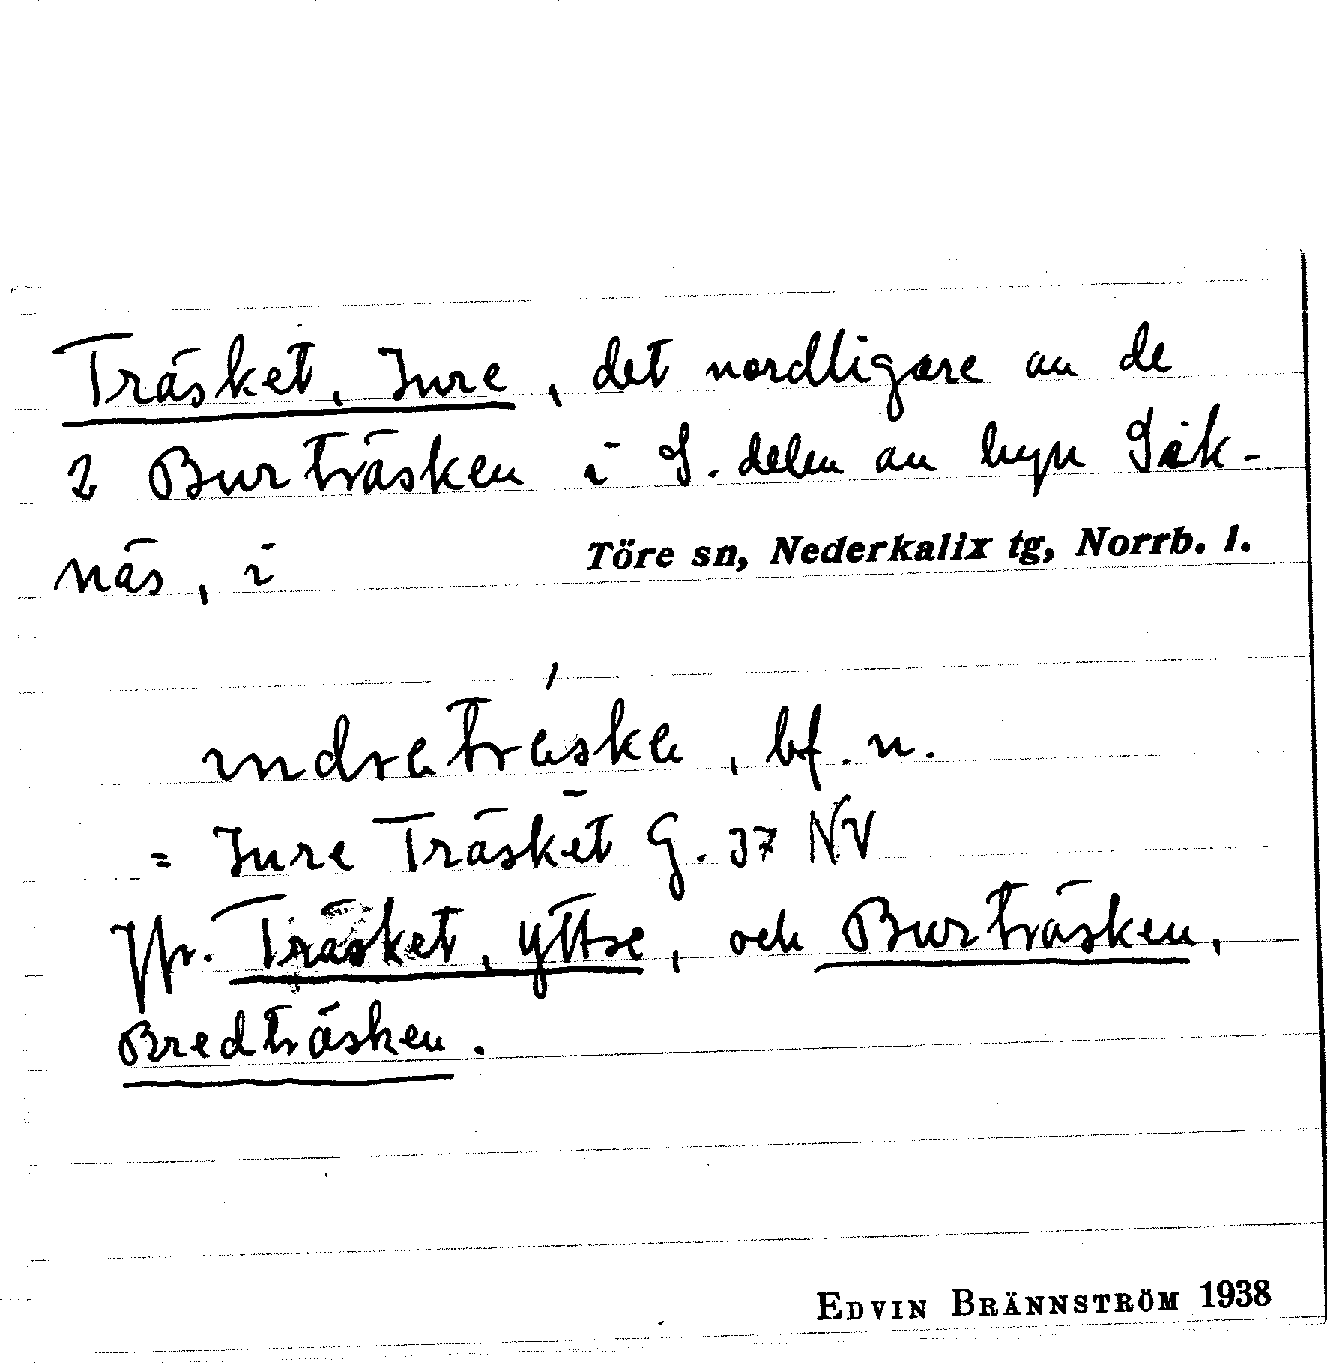 Träsket, Inre, det nordligare av de
2 Burträsken i S. delen av byn Sik-
näs, i Töre sn, Nederkalix tg, Norrb. l.
ındratráska, bf. n.
= Inre Träsket G. 37 NV
Jfr. Träsket, yttre, och Burträsken,
Bredträsken.
EDVIN BRÄNNSTRÖM 1938